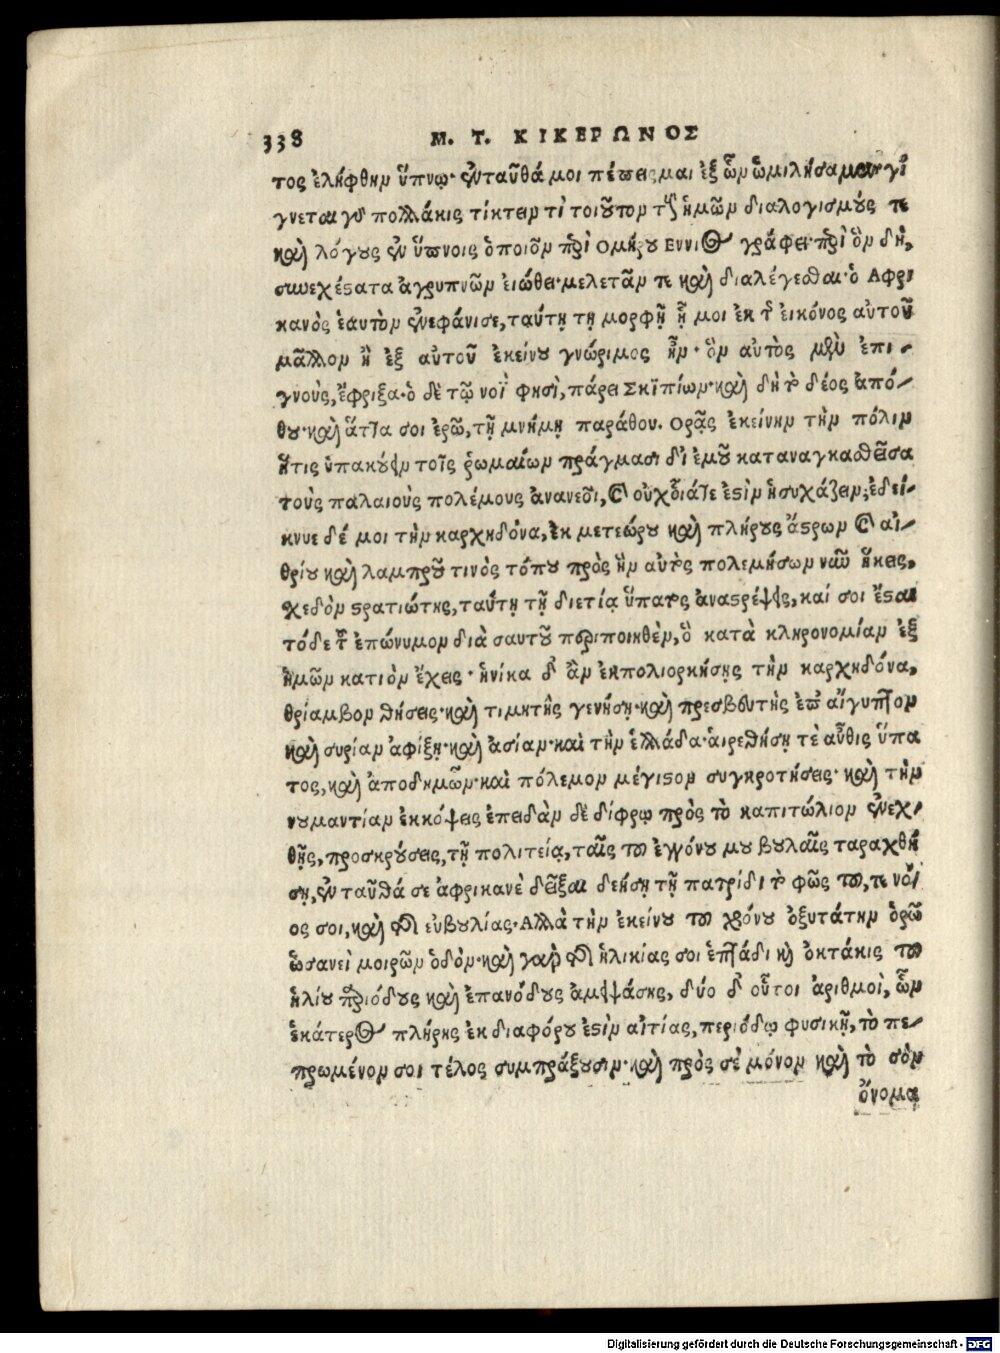 338 Μ. Τ. ΚΙΚΕΡΩΝΟΣ
τος ἐλήφθην ὕπνῳ· ἐνταῦθά μοι πέπεισμαι ἐξ ὧν ὡμιλήσαμεν· γί
γνεται γὸ πολλάκις τίκτειν τὶ τοιοῦτον τοὺς ἡμῶν διαλογισμούς τε
καὶ λόγους ἐν ὕπνοις ὁποῖον περὶ Ομήρου Εννιος γράφει· περὶ ὃν δή,
συνεχέστατα ἀγρυπνῶν εἰώθει· μελετᾶν τε καὶ διαλέγεσθαι· ὁ Αφρι
κανὸς ἑαυτὸν ἐνεφάνισε, ταύτῃ τῃ μορφῇ ᾗ μοι ἐκ τῆς εἰκόνος αὐτοῦ
μᾶλλον ἢ ἐξ αὐτοῦ ἐκείνου γνώριμος ἦν· ὃν αὐτὸς μὲν ἐπι-
γνοὺς, ἔφριξα· ὁ δὲ τῷ νοῒ φησὶ, πάρει Σκϊπίων· καὶ δὴ τὸ δέος ἀπό-
θου· καὶ ἅττα σοι ἐρῶ, τῇ μνήμῃ παράθου. Ορᾷς ἐκείνην τὴν πόλιν
ἥτις ὑπακούειν τοῖς ῥωμαίων πράγμασι δι' ἐμοῦ καταναγκασθεῖσα
τοὺς παλαιοὺς πολέμους ἀνανεοῖ, καὶ οὐχ οἷά τε ἐστὶν ἡσυχάζειν; ἐδεί-
κνυε δέ μοι τὴν καρχηδόνα, ἐκ μετεώρου καὶ πλήρους ἄστρων καὶ αἰ-
θρίου καὶ λαμπροῦ τινὸς τόπου πρὸς ἣν αὐτὸς πολεμήσων νῦν ἥκεις,
χεδὸν στρατιώτης, ταύτῃ τῇ διετίᾳ ὕπατος ἀναστρέψεις, καί σοι ἔσται
τόδε τὸ ἐπώνυμον διὰ σαυτοῦ περιποιηθὲν, ὃ κατὰ κληρονομίαν ἐξ
ἡμῶν κατιὸν ἔχεις· ἡνίκα δ' ἂν ἐκπολιορκήσῃς τὴν καρχηδόνα,
θρίαμβον θήσεις· καὶ τιμητὴς γενήσῃ· καὶ πρεσβευτὴς ἐπ' αἴγυπτον
καὶ συρίαν ἀφίξῃ· καὶ ἀσίαν· καὶ τὴν ἑλλάδα· αἱρεθήσῃ τὲ αὖθις ὕπα
τος, καὶ ἀποδημῶν· καὶ πόλεμον μέγιστον συγκροτήσεις· καὶ τὴν
νυμαντίαν ἐκκόψεις ἐπειδὰν δὲ δίφρῳ πρὸς τὸ καπιτώλιον ἐνεχ-
θῇς, προσκρούσεις, τῇ πολιτείᾳ, ταῖς τοῦ ἐγγόνου μου βουλαῖς ταραχθή
σῃ, ἐν ταῦθά σε ἀφρικανὲ δεῖξαι δεήσῃ τῇ πατρίδι τὸ φῶς τοῦ, τε νοΐ
ος σοι, καὶ τῆς εὐβουλίας· Αλλὰ τὴν ἐκείνου τοῦ χρόνου ὀξυτάτην ὁρῶ
ὡσανεὶ μοιρῶν ὁδόν· καὶ γὰρ τῆς ἡλικίας σοι ἑπτάδι καὶ ὀκτάκις τοῦ
ἡλίου περιόδους καὶ ἐπανόδους ἀμειψάσης, δύο δ' οὗτοι ἀριθμοὶ, ὧν
ἑκάτερος πλήρης ἐκ διαφόρου ἐστὶν αἰτίας, περιόδῳ φυσικῇ, τὸ πε-
πρωμένον σοι τέλος συμπράξουσιν· καὶ πρὸς σὲ μόνον καὶ τὸ σὸν
ὄνομα
Digitalisierung gefördert durch die Deutsche Forschungsgemeinschaft - DFG